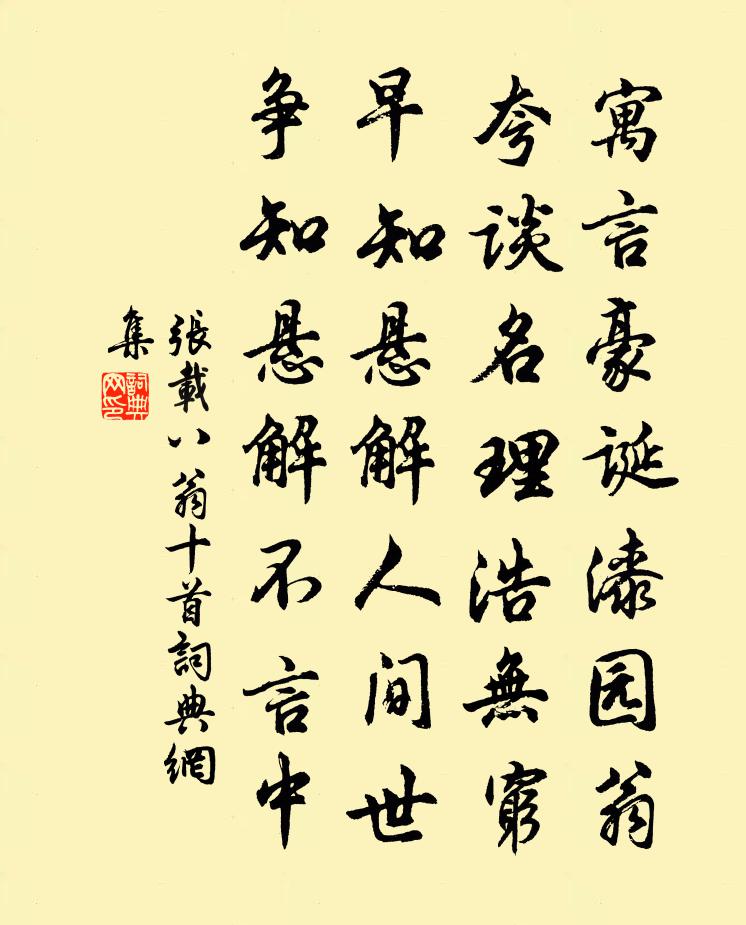 寓言豪诞漆园翁
夸谈名理浩無窮
早知悬解人间世
争知悬解不言中
張載八翁十首詞典網
集
詞典网印